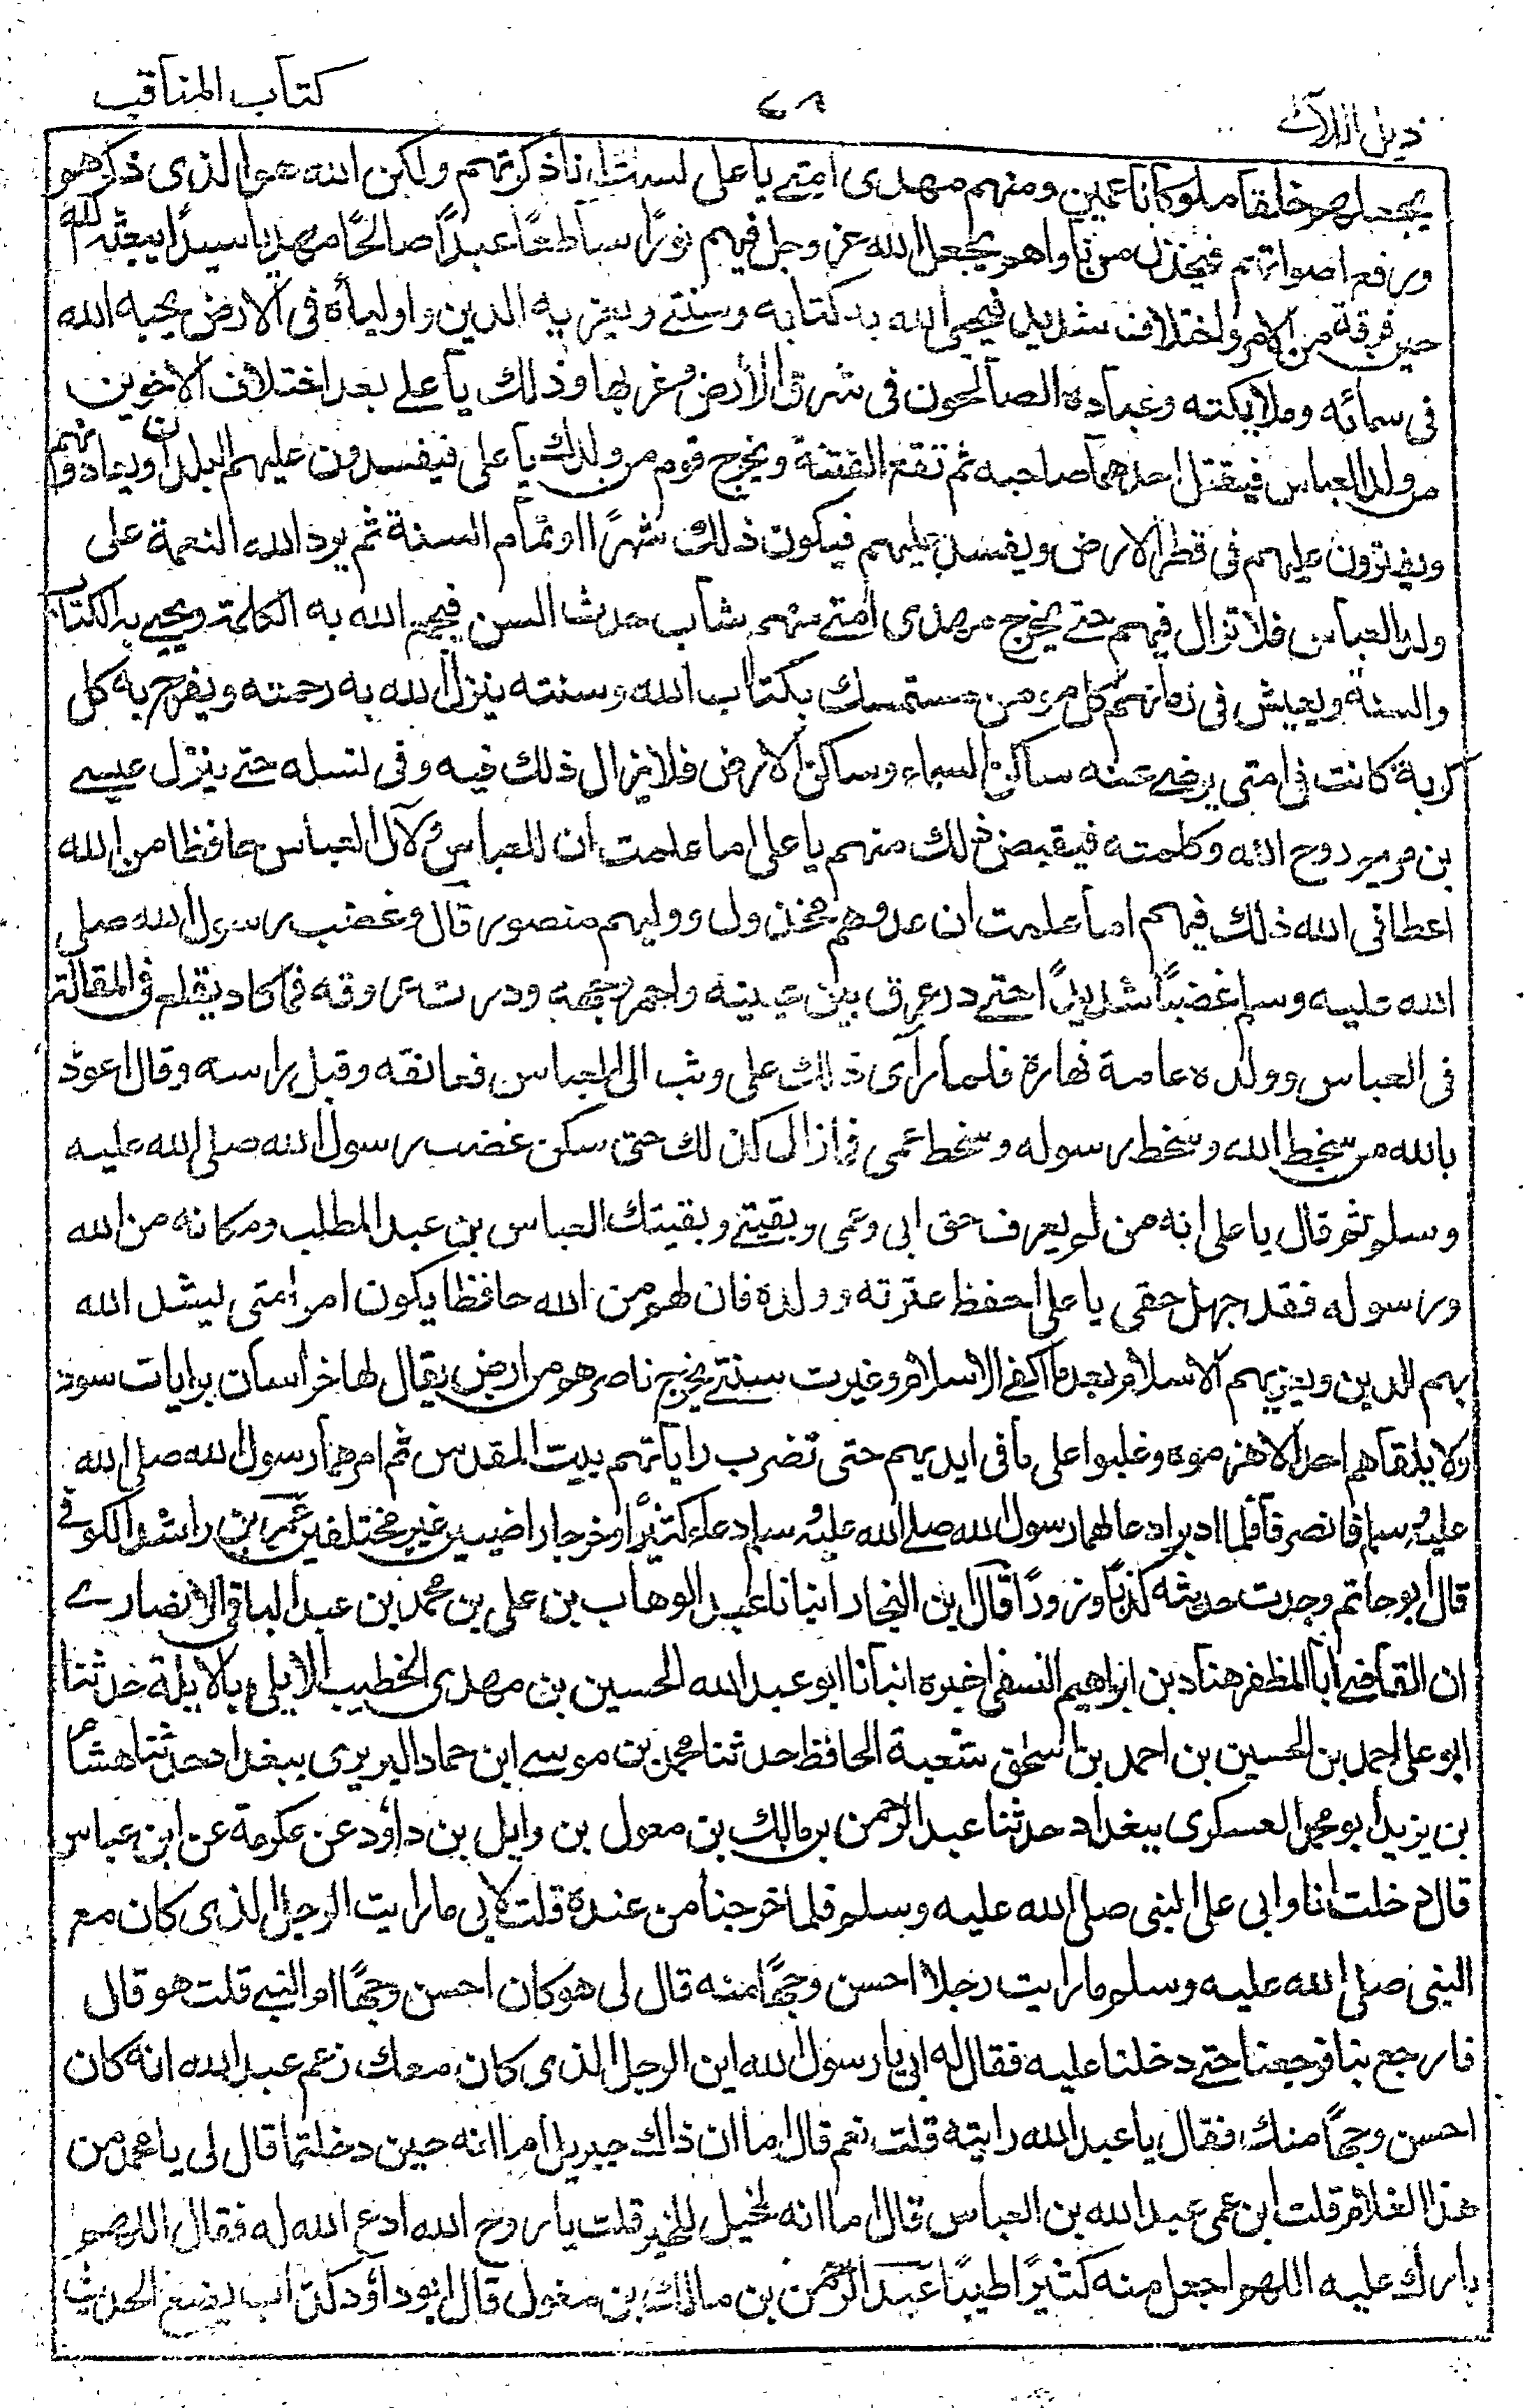 كتاب المناقب
٤٨
ذيل اللآلى
يجعلهم خلقا ملوكا ناعمين ومنهم مهدى امتى يا على لست انا ذكرتهم ولكن الله هو الذى ذكرهو
ورفع اصواتهم فيخذل من ناواهم يجعل الله عز وجل فيهم نورًا ساطعًا عبدًا صالحًا مهديا سيدًا يبعثه الله
حين فرقة من الامر واختلاف شديد فيحيى الله به كتابه وسنتى ويعز به الدين واولياؤه فى الارض يحبه الله
فى سمائه وملايكته وعباده الصالحون فى شرق الأرض وغربها وذلك يا على بعد اختلاف الاخوين
من ولد العباس فيقتل احدهما صاحبه ثم تقع الفتنة ويخرج قوم من ولدك يا على فيفسدون عليهم البلدان ويعادونهم
ويفترون عليهم فى قطر الارض ويفسد عليهم فيكون ذلك شهرًا او تمام السنة ثم يرد الله النعمة على
ولد العباس فلا تزال فيهم حتى يخرج مهدى امتى منهم شاب حدث السن فيجمع الله به الكلمة ويحيى به الكتاب
والسنة ويعيش فى زمانهم كل مومن مستمسك بكتاب الله وسنته ينزل الله به رحمته ويفرج به كل
كربة كانت فى امتى يرضى عنه ساكن السماء وساكن الارض فلا يزال ذلك فيه وفى نسله حتى ينزل عيسى
بن مريم روح الله وكلمته فيقبض ذلك منهم يا على اما علمت ان للعباس ولآل العباس حافظا من الله
اعطانى الله ذلك فيهم اما علمت ان عدوهم مخذول ووليهم منصور قال وغضب رسول الله صلى
الله عليه وسلم غضبًا شديدًا حتى در عرق بين عينيه واحمر وجهه ودرت عروقه فما كاد يقلع فى المقالة
فى العباس وولده عامة نهاره فلما رآى ذلك على وثب الى العباس فعانقه وقبل راسه وقال اعوذ
بالله من سخط الله وسخط رسوله وسخط عمى فما زال كذلك حتى سكن غضب رسول الله صلى الله عليه
وسلم ثم قال يا على انه من لم يعرف حق ابى وعمى وبقيتى وبقيتك العباس بن عبد المطلب ومكانه من الله
ورسوله فقد جهل حقى يا على احفظ عترته وولده فان لهم من الله حافظا يكون امر امتى ليشد الله
بهم الدين ويعز بهم الاسلام بعد ما اكفى الاسلام وغيرت سنتى يخرج ناصرهم من ارض يقال لها خراسان برايات سود
ولا يلقاهم احد الا هزموه وغلبوا على ما فى ايديهم حتى تضرب راياتهم بيت المقدس ثم امرهما رسول الله صلى الله
عليه وسلم فانصرفا فلما ادبرا دعا لهما رسول الله صلى الله عليه وسلم دعاء كثيرًا وخرجا راضيين غير مختلفين عمر بن راشد الكوفى
قال ابو حاتم وجدت حديثه كذبًا وزورًا قال ابن النجار انبانا عبد الوهاب بن على بن محمد بن عبد الباقى الانصارى
ان القاضى ابا المظفر هناد بن ابراهيم النسفى اخبره انبانا ابو عبد الله الحسين بن مهدى الخطيب الابلى بالابلة حدثنا
ابو على احمد بن الحسين بن احمد بن اسحق شعبة الحافظ حدثنا محمد بن موسى ابن حماد البربرى ببغداد حدثنا هشام
بن يزيد ابو محمد العسكرى ببغداد حدثنا عبد الرحمن بن مالك بن معول بن وايل بن داود عن عكرمة عن ابن عباس
قال دخلت انا وابى على النبى صلى الله عليه وسلم فلما خرجنا من عنده قلت لابى ما رايت الرجل الذى كان مع
النبى صلى الله عليه وسلم ما رايت رجلا احسن وجهًا منه قال لى هو كان احسن وجهًا او النبى قلت هو قال
فارجع بنا فرجعنا حتى دخلنا عليه فقال له ابى يا رسول الله اين الرجل الذى كان معك زعم عبد الله انه كان
احسن وجهًا منك فقال يا عبد الله رايته قلت نعم قال اما ان ذاك جبريل اما انه حين دخلتما قال لى يا محمد من
هذا الغلام قلت ابن عمى عبد الله بن العباس قال اما انه لمخيل للخير قلت يا روح الله ادع الله له فقال اللهم
بارك عليه اللهم اجعل منه كثيرًا طيبًا عبد الرحمن بن مالك بن مغول قال ابو داود كذاب يضع الحديث